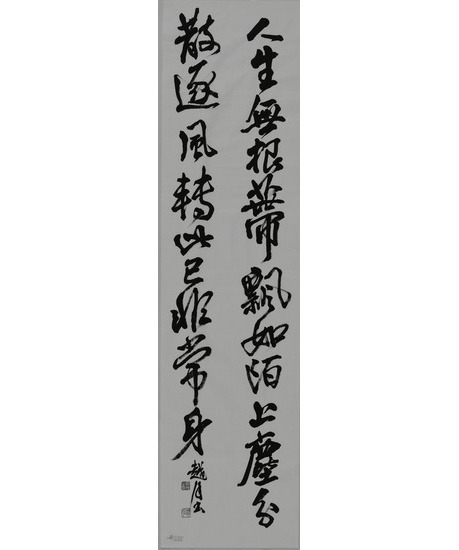 人生無根蒂飄如陌上塵分
散逐風轉此已非常身
趙